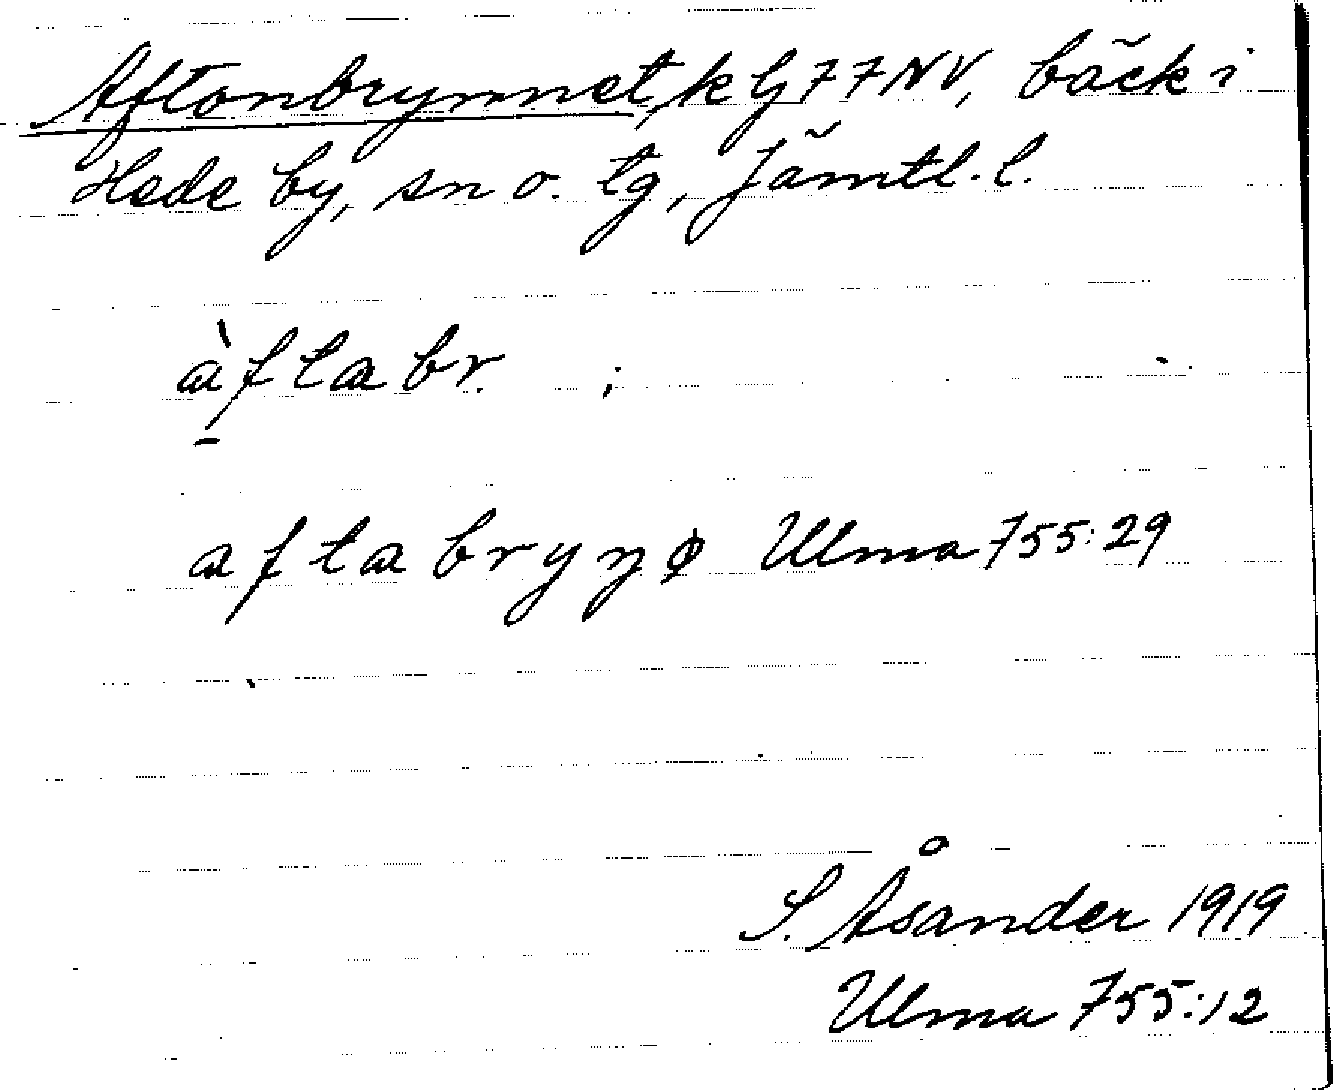 Aftonbrynnet, k G 77NV, bäck i
Hede by, sn o. tg, Jämtl. l.
àftabr. ;
aftabryŋø Ulma 755:29
S. Åsander 1919
Ulma 755:12